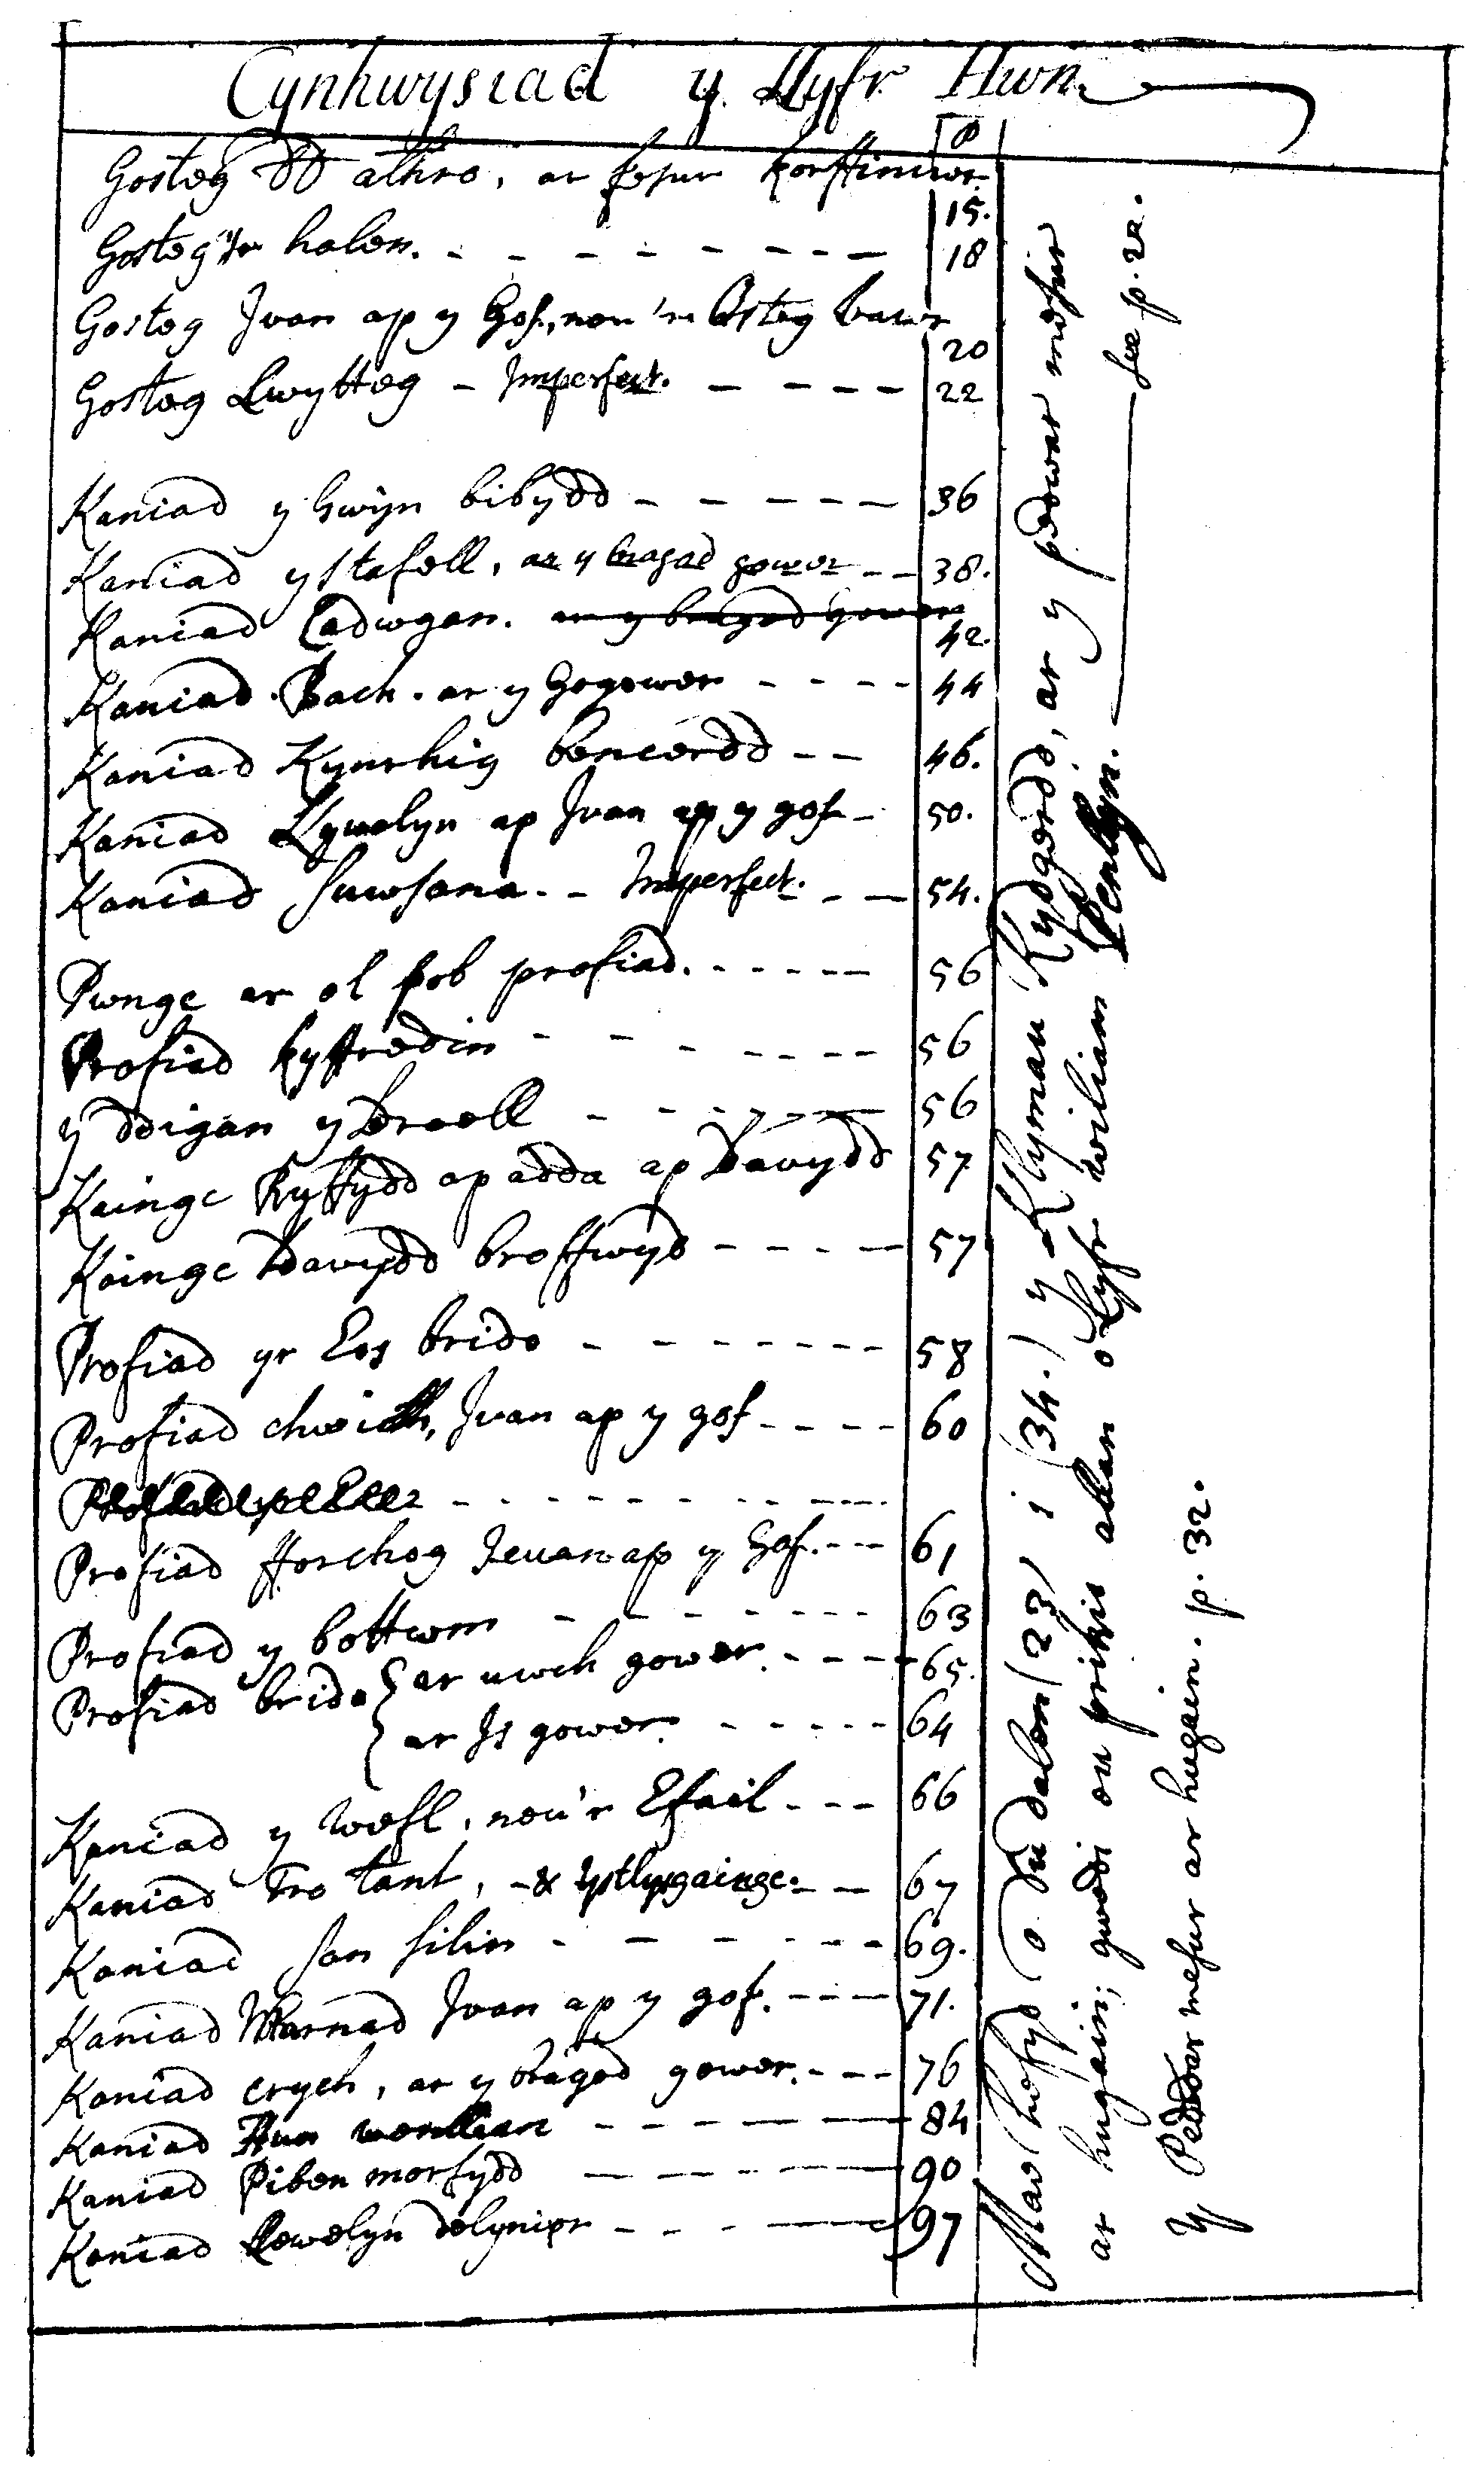 Cynhwysiad y Llyfr Hwn.
p
Gosteg Dd athro, ar fesur korffiniwr. 15.
Gosteg yr halen. - - - - - - - - 18
Gosteg Ivan ap y Gof, neu'r Osteg vawr 20
Gosteg Lwytteg - Imperfect. - - - - 22
Kaniad y Gwyn bibydd - - - - - 36
Kaniad ystafell, ar y bragod gower - - 38.
Kaniad Cadwgan. ar y bragod gower 42.
Kaniad Bach. ar y Gogower - - - - 44
Kaniad Kynrhig bencerdd - - 46.
Kaniad Llywelyn ap Ivan ap y gof - 50.
Kaniad suwsana. - Imperfect. - - 54.
Pwnge ar ol pob profiad. - - - - - 56
Profiad kyffredin - - - - - - - 56
y ddigan y droell - - - - - - 56
Kainge Ryffydd ap adda ap Davydd 57
Kainge Davydd broffwyd - - - - 57
Profiad yr Eos brido - - - - - - - 58
Profiad chwith, Ivan ap y gof - - - - 60
Profiad fforchog Ieuan ap y Gof. - - - 61
Profiad y bottwm - - - - - - - 63
Profiad brido { ar uwch gower. - - - - 65.
ar Is gower. - - - - - 64
Kaniad y wefl, neu'r Efail - - - 66
Kaniad tro tant, - & ystlysgainge. - - 67
Kaniad san silin - - - - - - - 69.
Kaniad Marnad Ivan ap y gof. - - - 71.
Kaniad crych, ar y bragod gower. - - - 76
Kaniad Hun wenllian - - - - - - 84
Kaniad Piben morfydd - - - - - 90
Kaniad Llewelyn delynior - - - - - 97
Mae hefyd (o du dalen (23) i (34.) y Klymau Kydgerdd, ar y pedwar mesur
ar hugain; gwedi eu prikio allan o Lyfr wiliam Penllyn. — see p. 22.
Y Pedwar mesur ar hugain. p. 32.